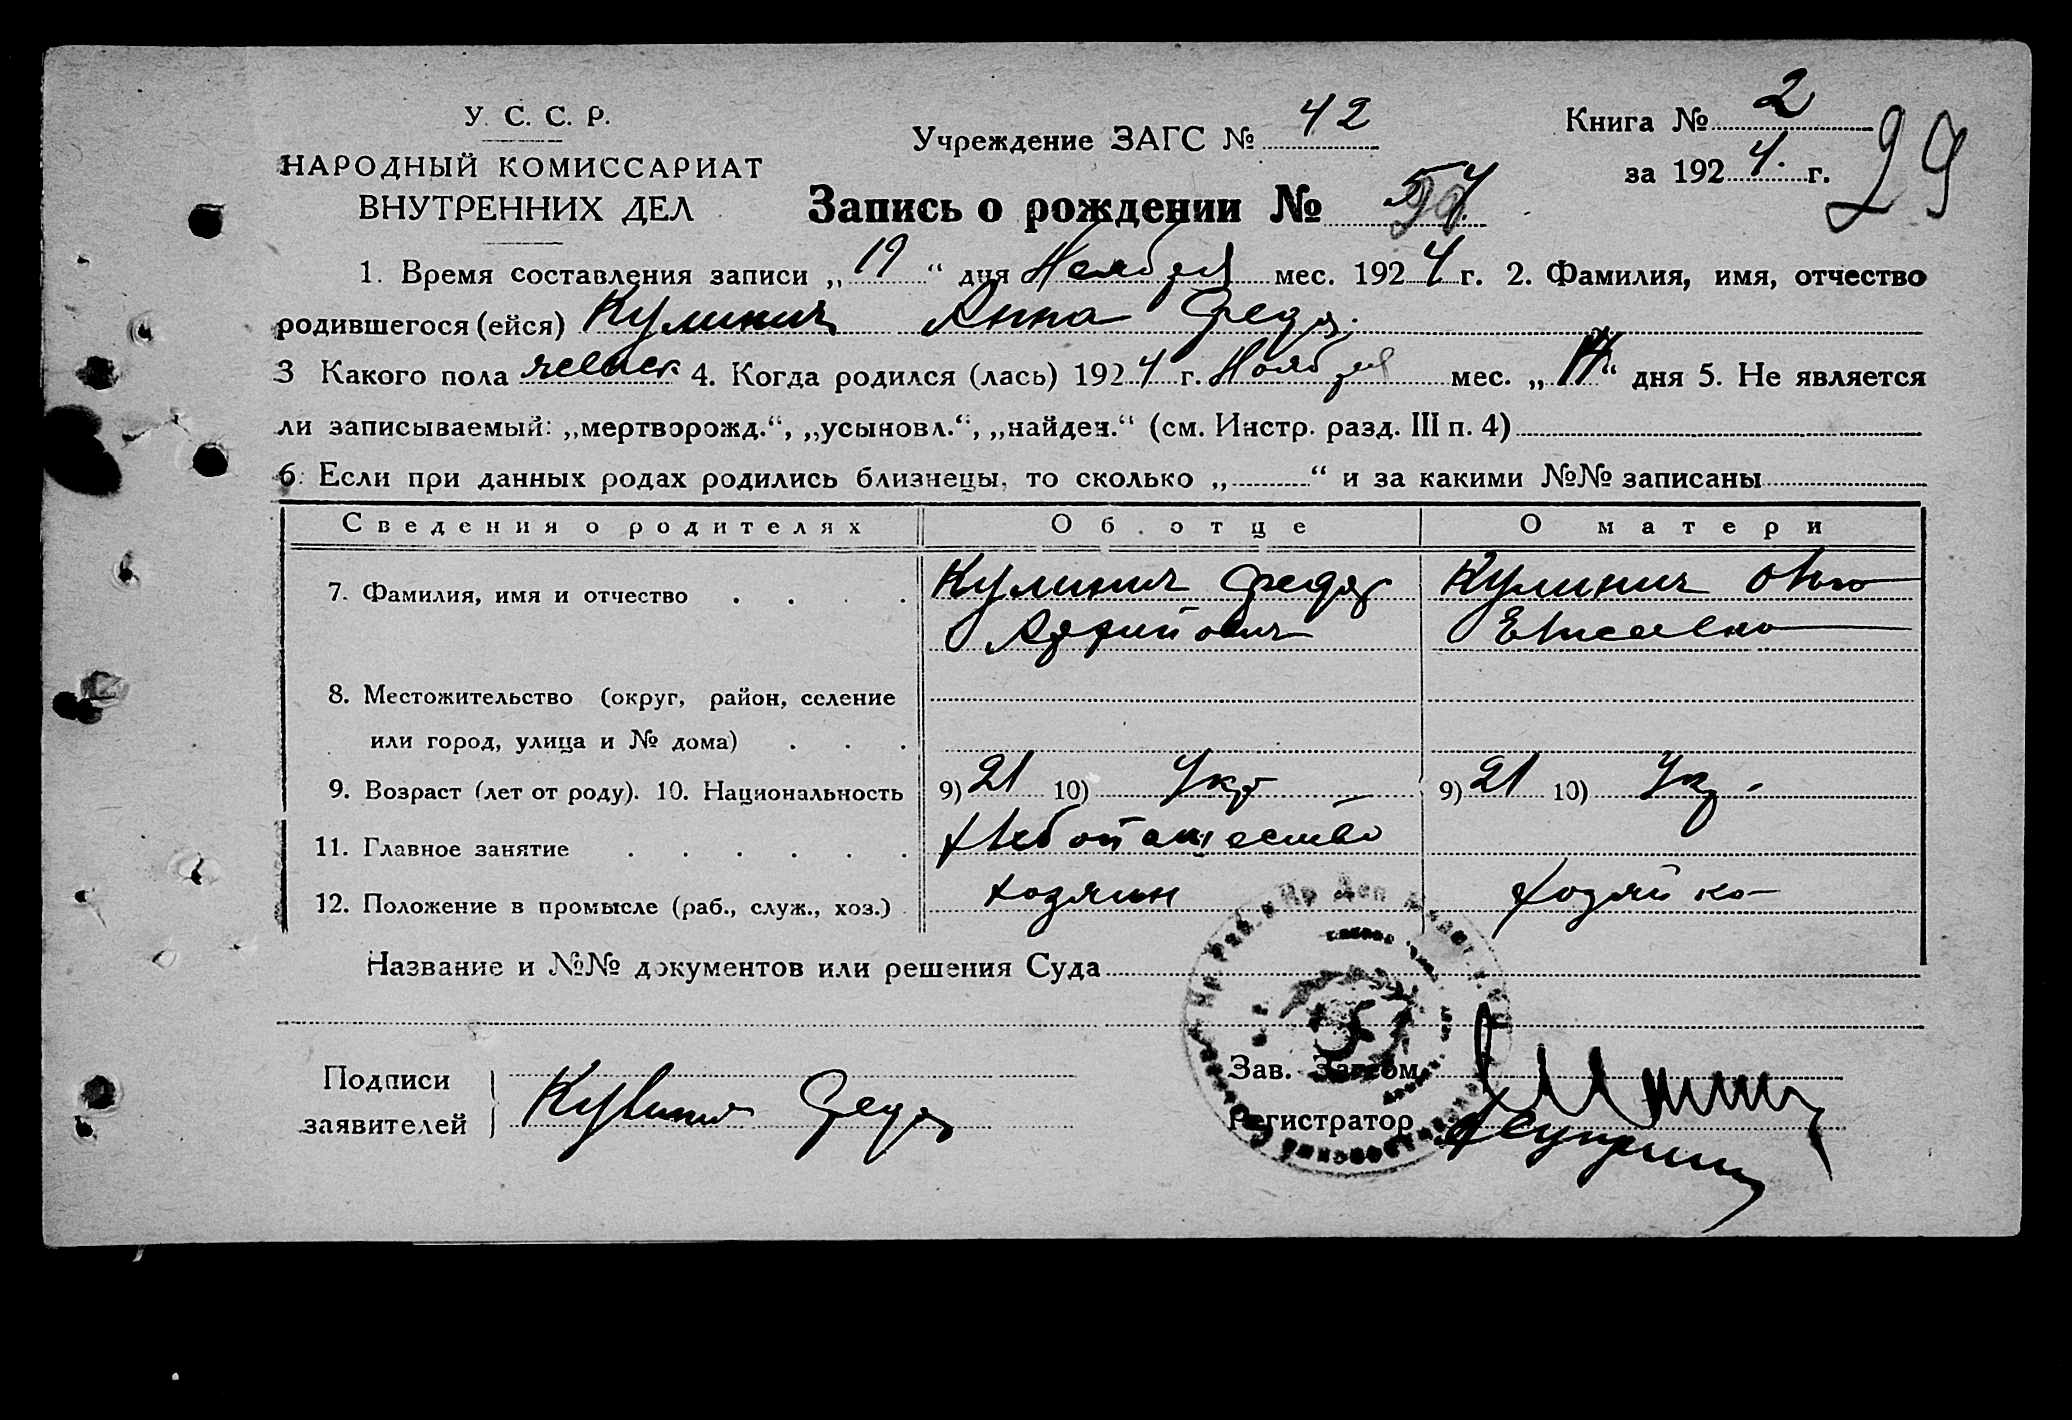 У. С. С. Р.
НАРОДНЫЙ КОМИССАРИАТ
ВНУТРЕННИХ ДЕЛ
Учреждение ЗАГС № 42
Книга № 2
за 1924 г.
29
Запись о рождении № 54
1. Время составления записи „19“ дня Ноября мес. 1924 г. 2. Фамилия, имя, отчество
родившегося (ейся) Кулинич Анна Федор.
3 Какого пола женск 4. Когда родился (лась) 1924 г. Ноября мес. „17“ дня 5. Не является
ли записываемый: „мертворожд.“, „усыновл.“, „найден.“ (см. Инстр. разд. III п. 4)
6. Если при данных родах родились близнецы, то сколько „ “ и за какими №№ записаны
Сведения о родителях Об отце О матери
7. Фамилия, имя и отчество Кулинич Федор Кулинич
8. Местожительство (округ, район, селение
или город, улица и № дома)
9. Возраст (лет от роду). 10. Национальность 9) 21 10) Укр 9) 21 10) Укр
11. Главное занятие Хлебопашество
12. Положение в промысле (раб., служ., хоз.) хозяин хозяйка
Название и №№ документов или решения Суда
Подписи
заявителей Кулинич Федор
Зав. Загсом
Регистратор